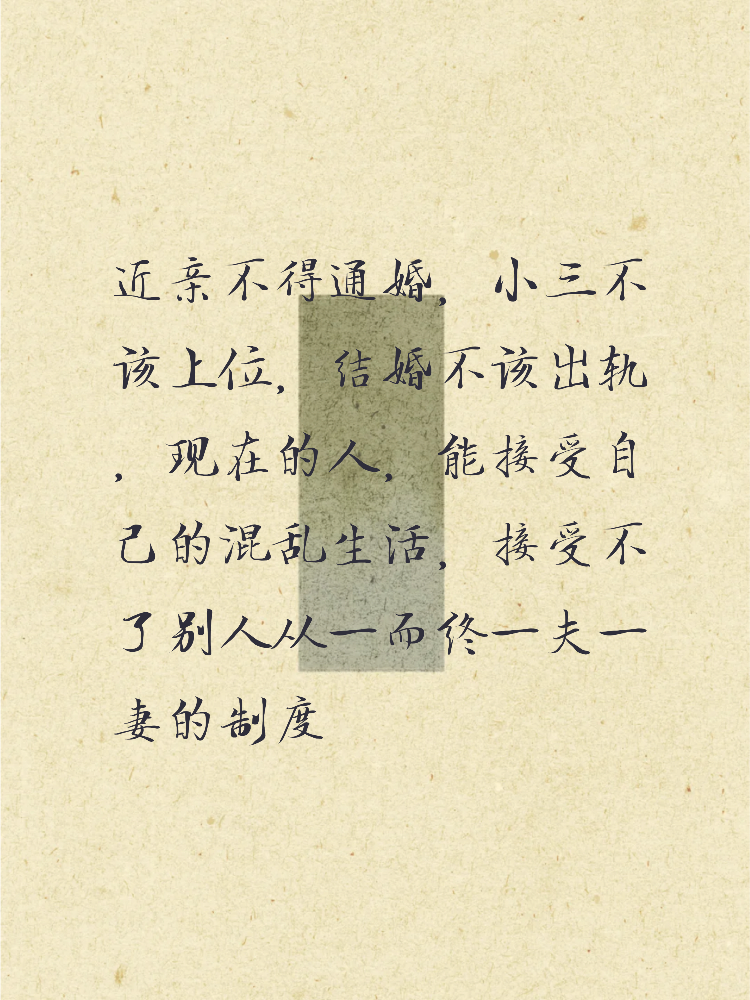 近亲不得通婚，小三不
该上位，结婚不该出轨
，现在的人，能接受自
己的混乱生活，接受不
了别人从一而终一夫一
妻的制度